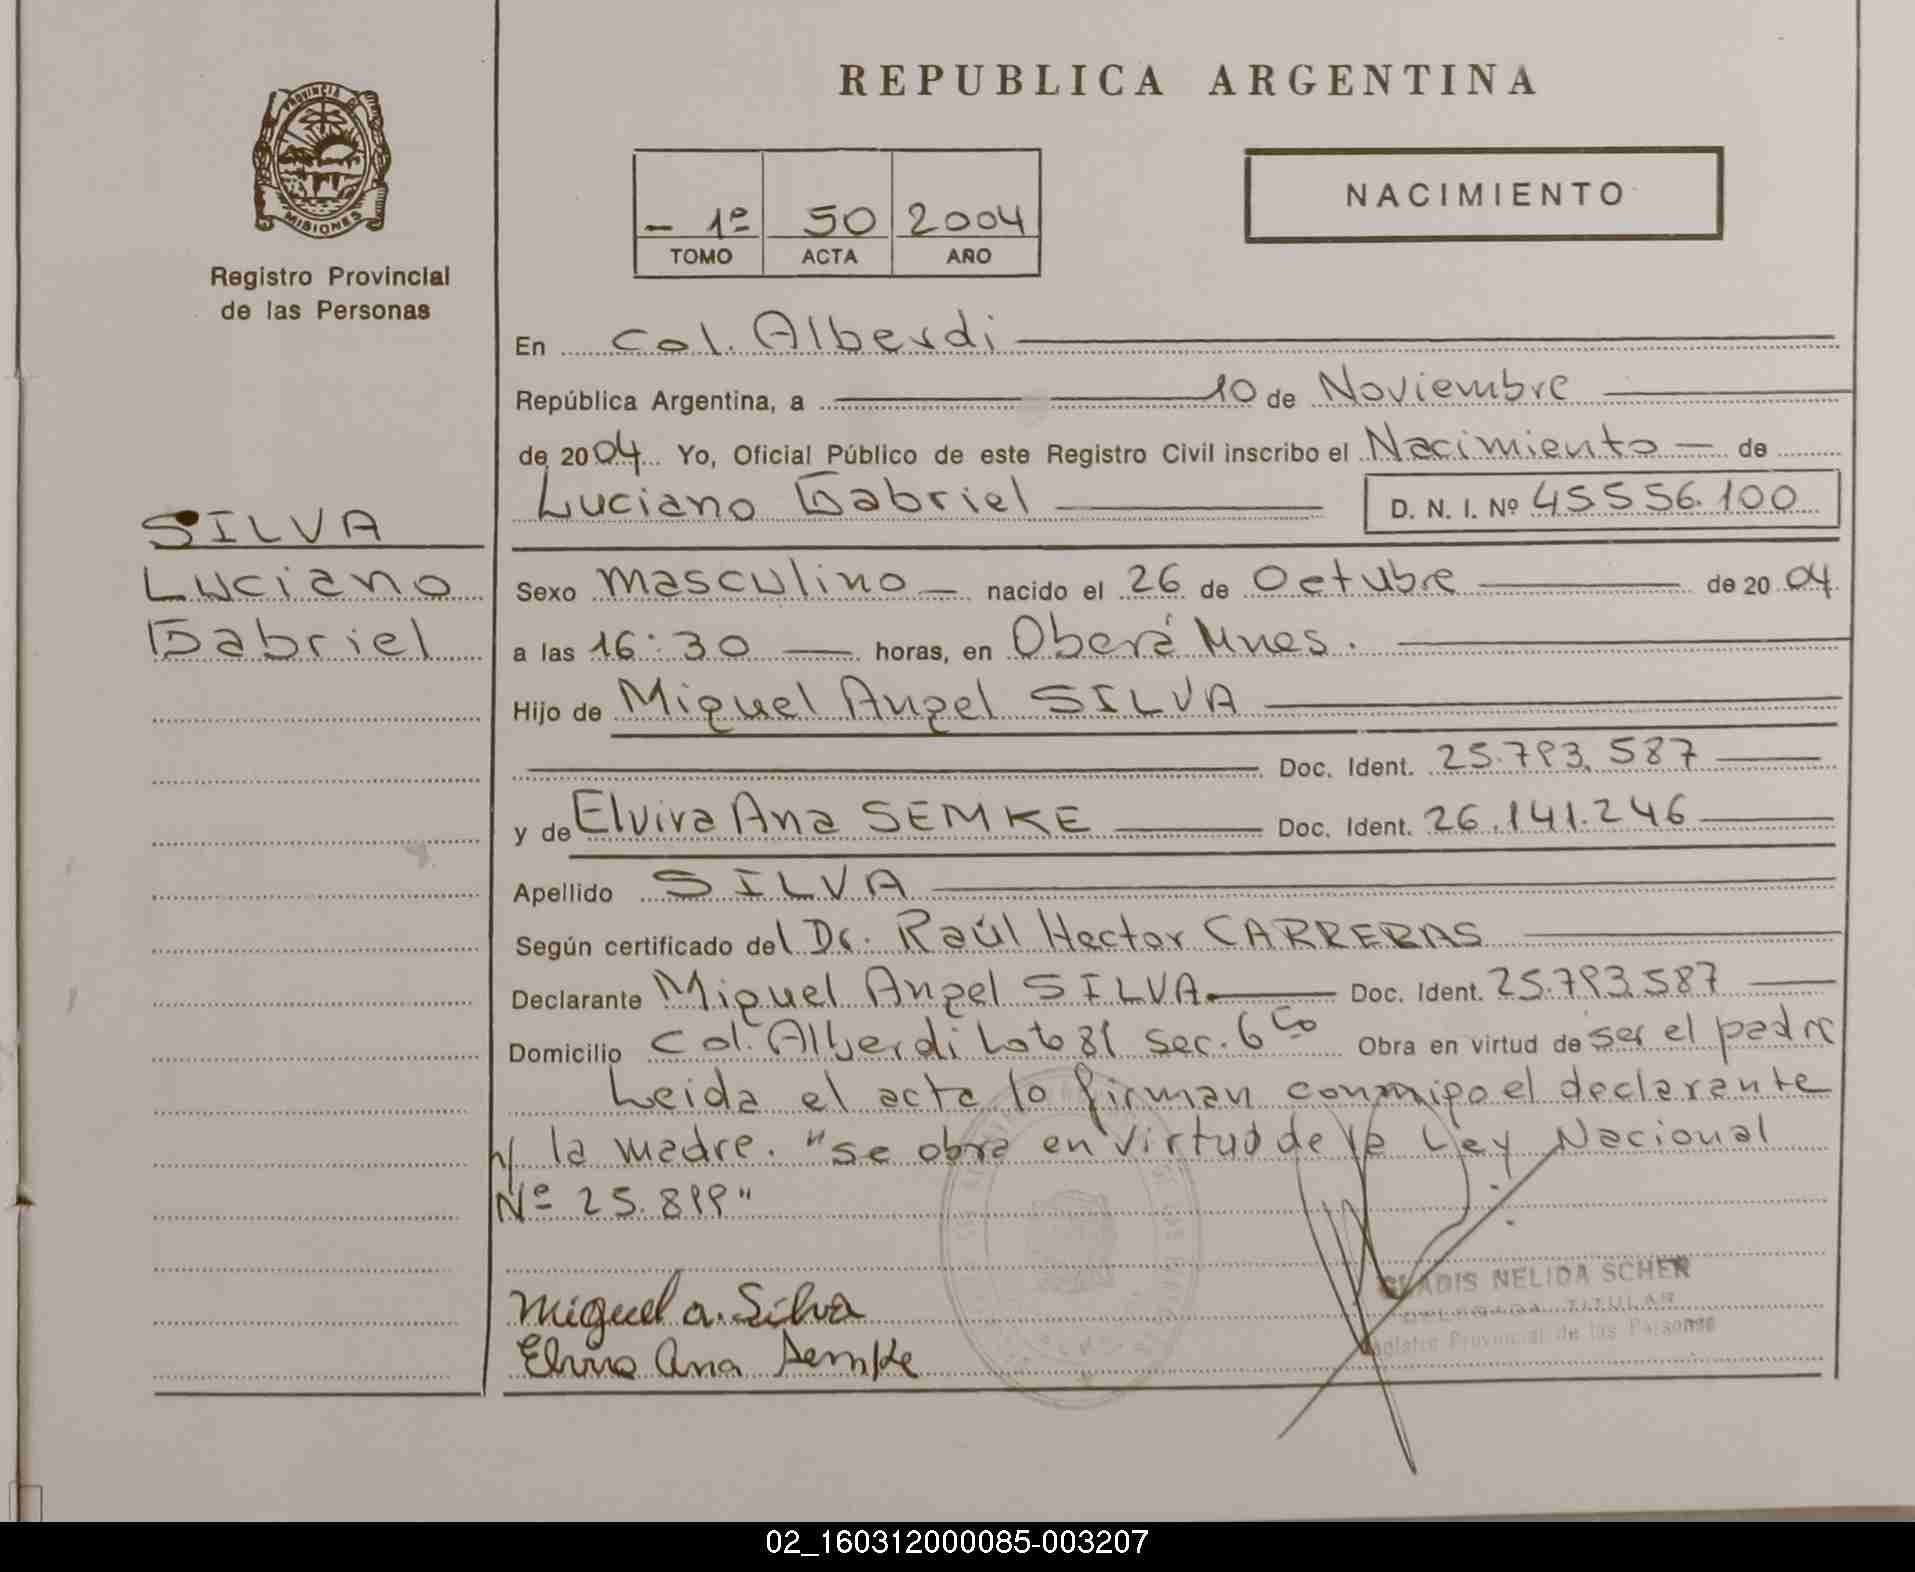 REPUBLICA ARGENTINA
PROVINCIA DE
MISIONES
Registro Provincial
de las Personas
- 1º 50 2004
TOMO ACTA AÑO
NACIMIENTO
En Col. Alberdi
República Argentina, a 10 de Noviembre
de 2004 Yo, Oficial Público de este Registro Civil inscribo el Nacimiento — de
Luciano Gabriel D. N. I. Nº 45556.100
SILVA
Luciano
Gabriel
Sexo masculino — nacido el 26 de Octubre de 2004
a las 16:30 — horas, en Oberá Mnes.
Hijo de Miguel Angel SILVA
Doc. Ident. 25.793.587
y de Elvira Ana SEMKE Doc. Ident. 26.141.246
Apellido SILVA
Según certificado del Dr. Raúl Hector CARRERAS
Declarante Miguel Angel SILVA Doc. Ident. 25.793.587
Domicilio Col. Alberdi Lote 81 sec. 6 Obra en virtud de ser el padre
Leida el acta lo firman conmigo el declarante
y la madre. "se obra en virtud de la Ley Nacional
Nº 25.819"
Miguel a. Silva
Elvira Ana Semke
GLADIS NELIDA SCHER
DELEGADA TITULAR
Registro Provincial de las Personas
02_160312000085-003207